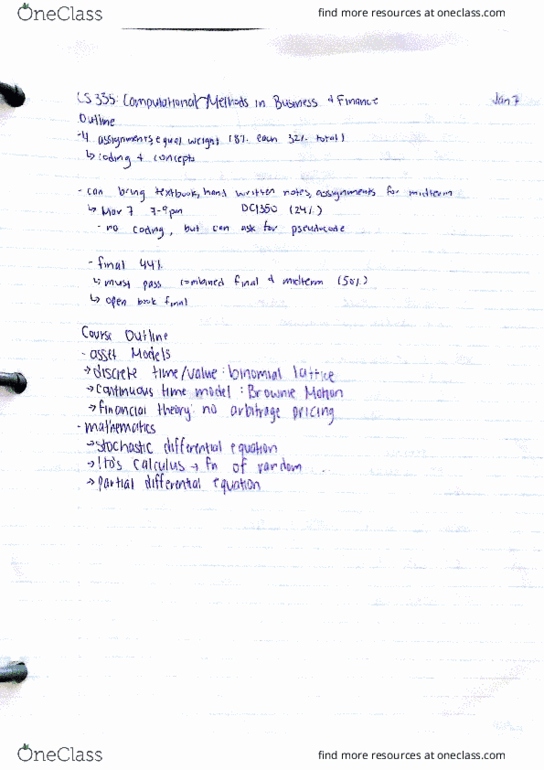 OneClass find more resources at oneclass.com
CS 335: Computational Methods in Business & Finance Jan 7
Outline
-4 assignments, equal weight (8% each 32% total)
↳ coding & concepts
- can bring textbook, hand written notes, assignments for midterm
↳ Mar 7 7-9pm DC1350 (24%)
- no coding, but can ask for pseudocode
- final 44%
↳ must pass combined final & midterm (50%)
↳ open book final
Course Outline
- asset Models
→ discrete time/value: binomial lattice
→ continuous time model: Brownie Motion
→ financial theory: no arbitrage pricing
- mathematics
→ stochastic differential equation
→ Ito's calculus → fn of random
→ partial differential equation
OneClass find more resources at oneclass.com